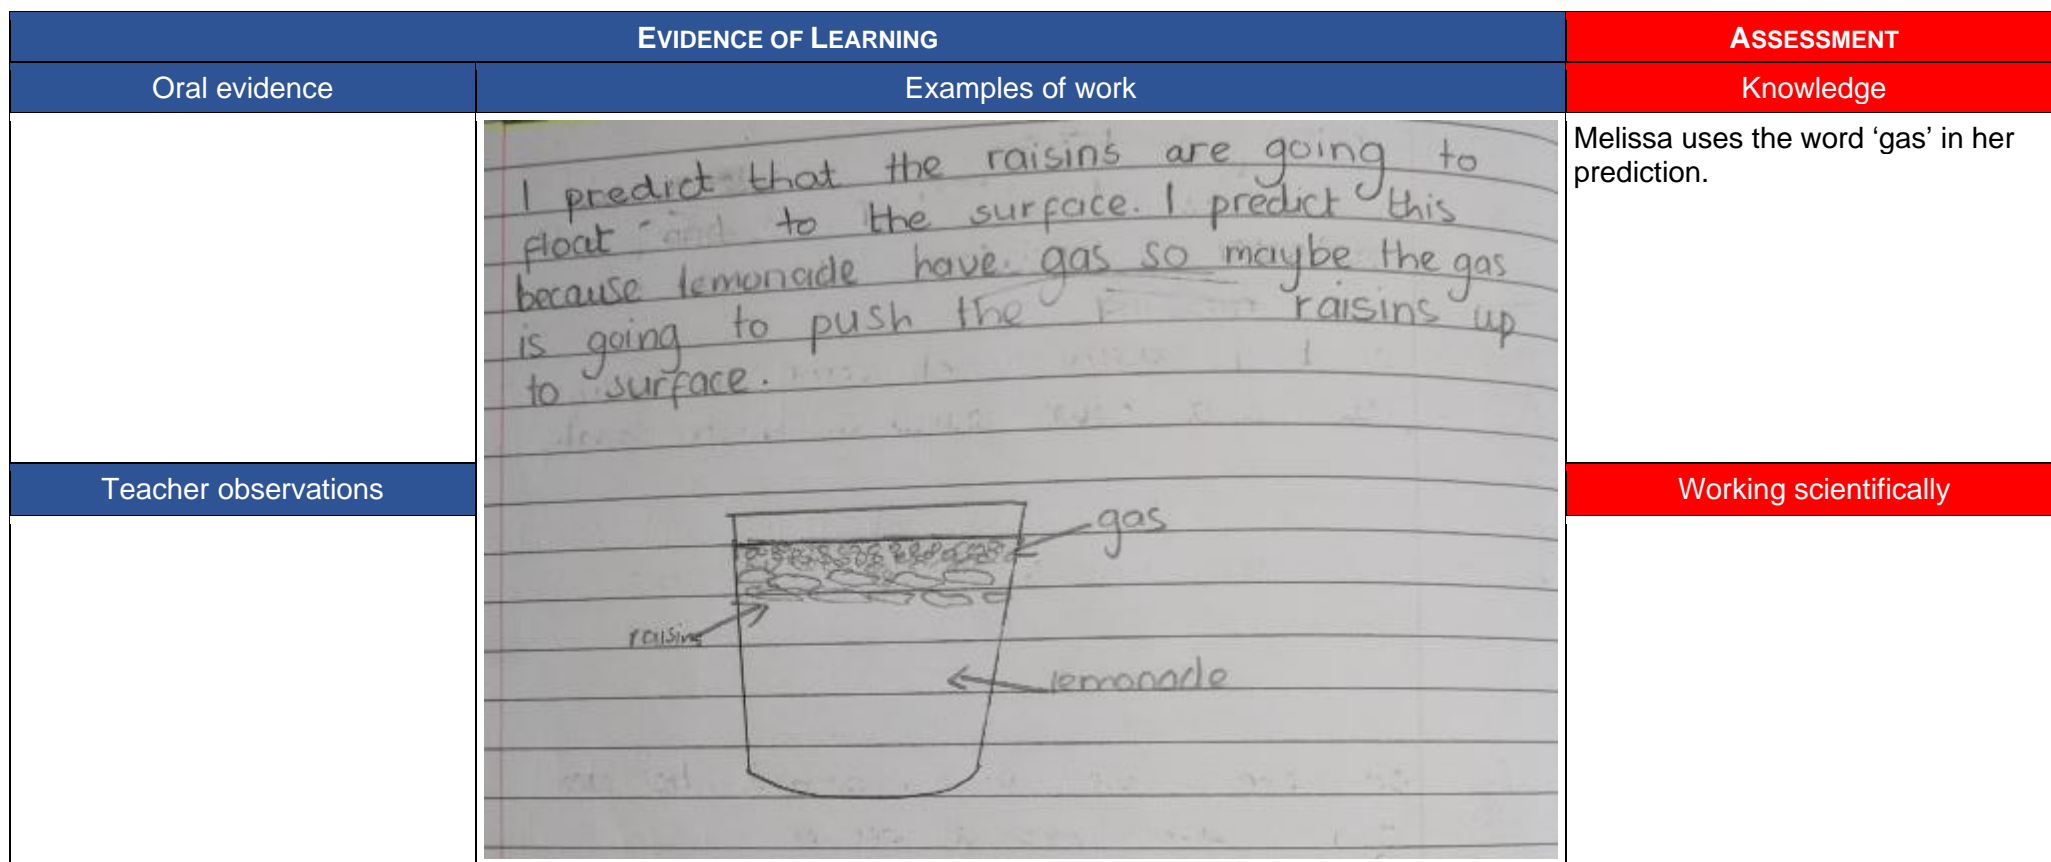 EVIDENCE OF LEARNING
ASSESSMENT
Oral evidence
Examples of work
Knowledge
I predict that the raisins are going to
float to the surface. I predict this
because lemonade have gas so maybe the gas
is going to push the raisins up
to surface.
Melissa uses the word ‘gas’ in her
prediction.
Teacher observations
Working scientifically
gas
raisins
lemonade